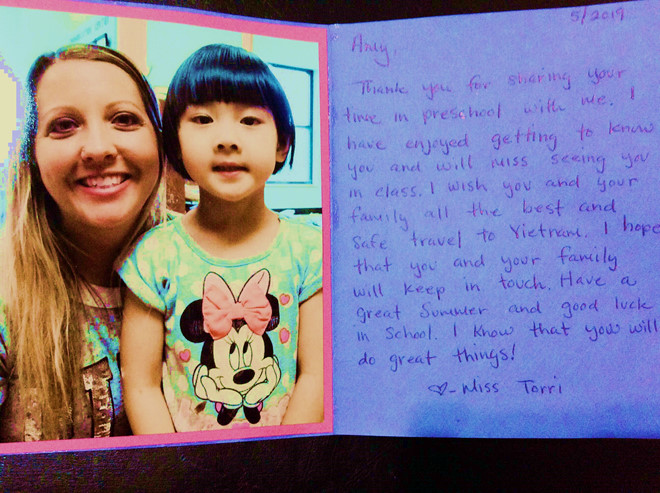 5/2019
Amy,
Thank you for sharing your
time in preschool with me. I
have enjoyed getting to know
you and will miss seeing you
in class. I wish you and your
family all the best and
safe travel to Vietnam. I hope
that you and your family
will keep in touch. Have a
great Summer and good luck
in School. I know that you will
do great things!
♡-Miss Torri